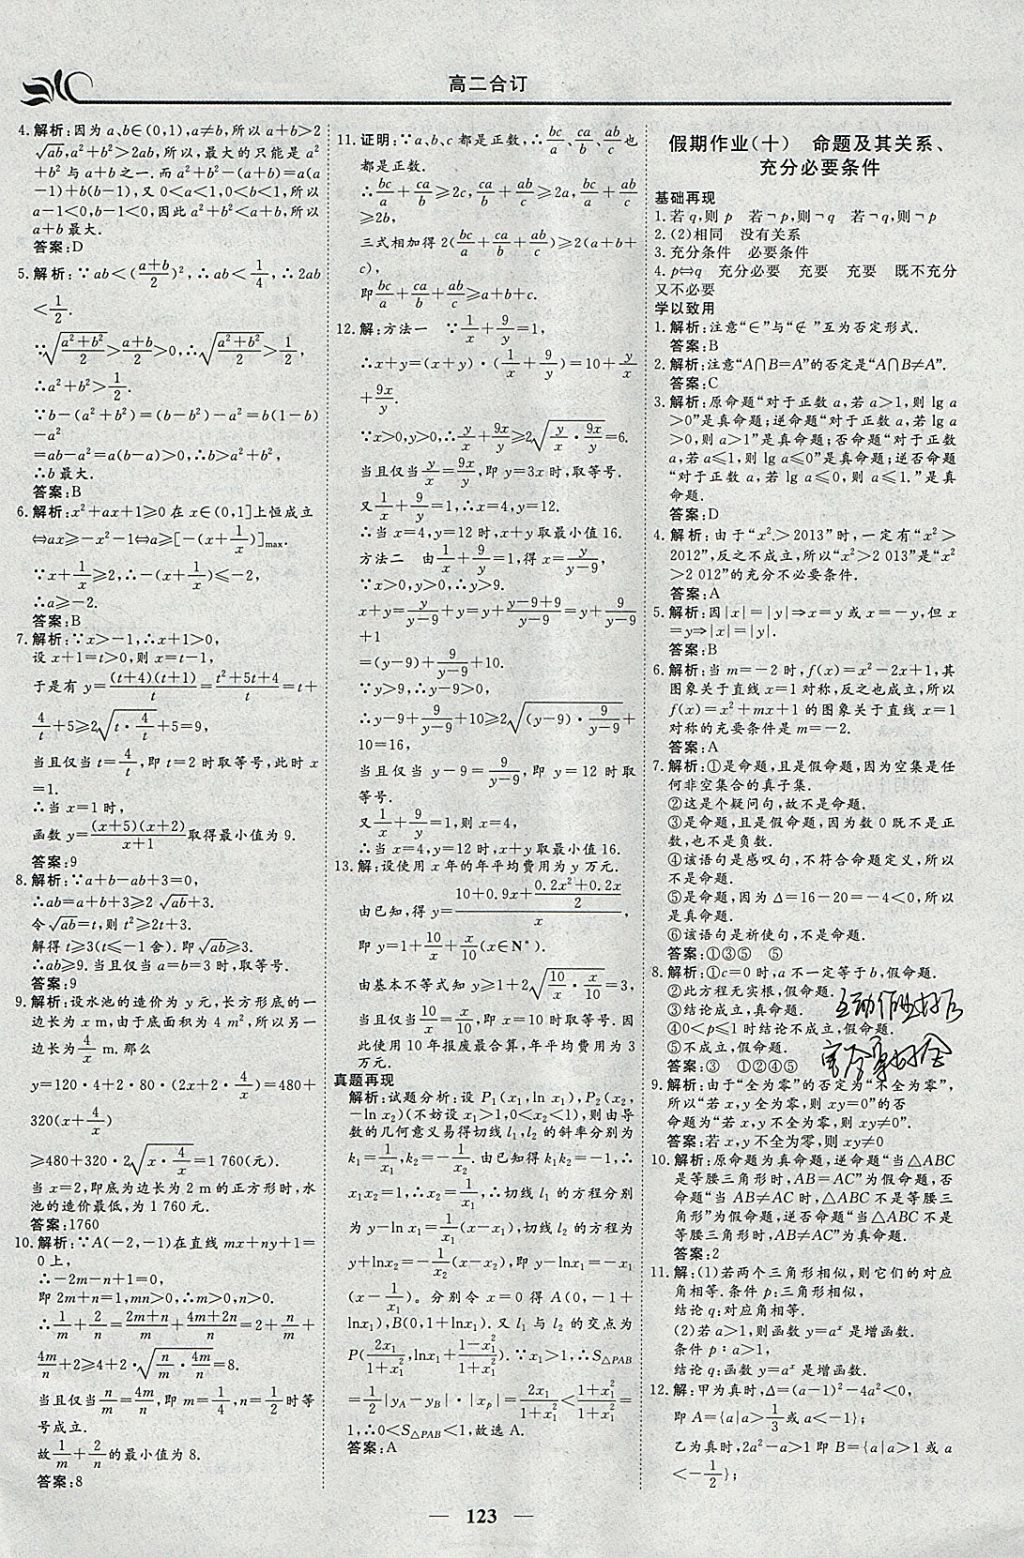 高二合订
4. 解析:因为 a、b∈(0,1),a≠b,所以 a+b>2
√ab,a²+b²>2ab,所以,最大的只能是 a²
+b² 与 a+b 之一.而 a²+b²-(a+b)=a(a
-1)+b(b-1),又 0<a<1,0<b<1,所以
a-1<0,b-1<0,因此 a²+b²<a+b,所以
a+b 最大.
答案:D
5. 解析:∵ab<((a+b)/2)²,∴ab<1/4,∴2ab
<1/2.
∵√((a²+b²)/2)>(a+b)/2>0,∴√((a²+b²)/2)>1/2,
∴a²+b²>1/2.
∵b-(a²+b²)=(b-b²)-a²=b(1-b)
-a²
=ab-a²=a(b-a)>0,∴b>a²+b²,
∴b 最大.
答案:B
6. 解析:x²+ax+1≥0 在 x∈(0,1]上恒成立
⇔ax≥-x²-1⇔a≥[-(x+1/x)]max.
∵x+1/x≥2,∴-(x+1/x)≤-2,
∴a≥-2.
答案:B
7. 解析:∵x>-1,∴x+1>0,
设 x+1=t>0,则 x=t-1,
于是有 y=(t+4)(t+1)/t=(t²+5t+4)/t=t+
4/t+5≥2√(t·4/t)+5=9,
当且仅当 t=4/t,即 t=2 时取等号,此时 x
=1.
∴当 x=1 时,
函数 y=(x+5)(x+2)/(x+1)取得最小值为 9.
答案:9
8. 解析:∵a+b-ab+3=0,
∴ab=a+b+3≥2√ab+3.
令√ab=t,则 t²≥2t+3.
解得 t≥3(t≤-1 舍).即√ab≥3.
∴ab≥9.当且仅当 a=b=3 时,取等号.
答案:9
9. 解析:设水池的造价为 y 元,长方形底的一
边长为 x m,由于底面积为 4 m²,所以另一
边长为4/x m.那么
y=120·4+2·80·(2x+2·4/x)=480+
320(x+4/x)
≥480+320·2√(x·4/x)=1 760(元).
当 x=2,即底为边长为 2 m 的正方形时,水
池的造价最低,为 1 760 元.
答案:1760
10. 解析:∵A(-2,-1)在直线 mx+ny+1=
0 上,
∴-2m-n+1=0,
即 2m+n=1,mn>0,∴m>0,n>0.
∴1/m+2/n=(2m+n)/m+(4m+2n)/n=2+n/m+
4m/n+2≥4+2·√(n/m·4m/n)=8.
当且仅当n/m=4m/n,即 m=1/4,n=1/2时等
号成立.
故1/m+2/n的最小值为 8.
答案:8
11. 证明:∵a、b、c 都是正数,∴bc/a、ca/b、ab/c也
都是正数.
∴bc/a+ca/b≥2c,ca/b+ab/c≥2a,bc/a+ab/c
≥2b,
三式相加得 2(bc/a+ca/b+ab/c)≥2(a+b+
c),
即bc/a+ca/b+ab/c≥a+b+c.
12. 解:方法一 ∵1/x+9/y=1,
∴x+y=(x+y)·(1/x+9/y)=10+y/x
+9x/y.
∵x>0,y>0,∴y/x+9x/y≥2√(y/x·9x/y)=6.
当且仅当y/x=9x/y,即 y=3x 时,取等号.
又1/x+9/y=1,∴x=4,y=12.
∴当 x=4,y=12 时,x+y 取最小值 16.
方法二 由1/x+9/y=1,得 x=y/(y-9).
∵x>0,y>0,∴y>9.
x+y=y/(y-9)+y=y+(y-9+9)/(y-9)=y+9/(y-9)
+1
=(y-9)+9/(y-9)+10.
∵y>9,∴y-9>0,
∴y-9+9/(y-9)+10≥2√((y-9)·9/(y-9))+
10=16,
当且仅当 y-9=9/(y-9),即 y=12 时取
等号.
又1/x+9/y=1,则 x=4,
∴当 x=4,y=12 时,x+y 取最小值 16.
13. 解:设使用 x 年的年平均费用为 y 万元.
由已知,得 y=(10+0.9x+(0.2x²+0.2x)/2)/x,
即 y=1+10/x+x/10(x∈N*).
由基本不等式知 y≥1+2√(10/x·x/10)=3,
当且仅当10/x=x/10,即 x=10 时取等号.因
此使用 10 年报废最合算,年平均费用为 3
万元.
真题再现
解析:试题分析:设 P₁(x₁,ln x₁),P₂(x₂,
-ln x₂)(不妨设 x₁>1,0<x₂<1),则由导
数的几何意义易得切线 l₁,l₂ 的斜率分别为
k₁=1/x₁,k₂=-1/x₂.由已知得 k₁k₂=-1,∴
x₁x₂=1,∴x₂=1/x₁,∴切线 l₁ 的方程分别
为 y-ln x₁=1/x₁(x-x₁),切线 l₂ 的方程为
y+lnx₂=-1/x₂(x-x₂),即 y-lnx₁=-x₁
(x-1/x₁). 分别令 x=0 得 A(0,-1+
lnx₁),B(0,1+lnx₁).又 l₁ 与 l₂ 的交点为
P(2x₁/(1+x₁²),lnx₁+(1-x₁²)/(1+x₁²)).∵x₁>1,∴S△PAB
=1/2|y_A-y_B|·|x_p|=2x₁/(1+x₁²)<(1+x₁²)/(1+x₁²)=
1,∴0<S△PAB<1,故选 A.
答案:A
假期作业(十) 命题及其关系、
充分必要条件
基础再现
1. 若 q,则 p 若¬p,则¬q 若¬q,则¬p
2. (2)相同 没有关系
3. 充分条件 必要条件
4. p⇔q 充分必要 充要 充要 既不充分
又不必要
学以致用
1. 解析:注意“∈”与“∉”互为否定形式.
答案:B
2. 解析:注意“A∩B=A”的否定是“A∩B≠A”.
答案:C
3. 解析:原命题“对于正数 a,若 a>1,则 lg a
>0”是真命题;逆命题“对于正数 a,若 lg a
>0,则 a>1”是真命题;否命题“对于正数
a,若 a≤1,则 lg a≤0”是真命题;逆否命题
“对于正数 a,若 lg a≤0,则 a≤1”是真
命题.
答案:D
4. 解析:由于“x²>2013”时,一定有“x²>
2012”,反之不成立,所以“x²>2 013”是“x²
>2 012”的充分不必要条件.
答案:A
5. 解析:因|x|=|y|⇒x=y 或 x=-y,但 x
=y⇒|x|=|y|.
答案:B
6. 解析:当 m=-2 时,f(x)=x²-2x+1,其
图象关于直线 x=1 对称,反之也成立,所以
f(x)=x²+mx+1 的图象关于直线 x=1
对称的充要条件是 m=-2.
答案:A
7. 解析:①是命题,且是假命题,因为空集是任
何非空集合的真子集.
②这是个疑问句,故不是命题.
③是命题,且是假命题,因为数 0 既不是正
数,也不是负数.
④该语句是感叹句,不符合命题定义,所以
不是命题.
⑤是命题,因为 Δ=16-20=-4<0,所以
是真命题.
⑥该语句是祈使句,不是命题.
答案:①③⑤ ⑤
8. 解析:①c=0 时,a 不一定等于 b,假命题.
②此方程无实根,假命题.
③结论成立,真命题.
④0<p≤1 时结论不成立,假命题.
⑤不成立,假命题.
答案:③ ①②④⑤
9. 解析:由于“全为零”的否定为“不全为零”,
所以“若 x,y 全为零,则 xy=0”的否
命题为“若 x,y 不全为零,则 xy≠0”.
答案:若 x,y 不全为零,则 xy≠0
10. 解析:原命题为真命题,逆命题“当△ABC
是等腰三角形时,AB=AC”为假命题,否
命题“当 AB≠AC 时,△ABC 不是等腰三
角形”为假命题,逆否命题“当△ABC 不是
等腰三角形时,AB≠AC”为真命题.
答案:2
11. 解:(1)若两个三角形相似,则它们的对应
角相等.条件 p:三角形相似,
结论 q:对应角相等.
(2)若 a>1,则函数 y=aˣ 是增函数.
条件 p:a>1,
结论 q:函数 y=aˣ 是增函数.
12. 解:甲为真时,Δ=(a-1)²-4a²<0,
即 A={a|a>1/3或 a<-1};
乙为真时,2a²-a>1 即 B={a|a>1 或 a
<-1/2};
— 123 —